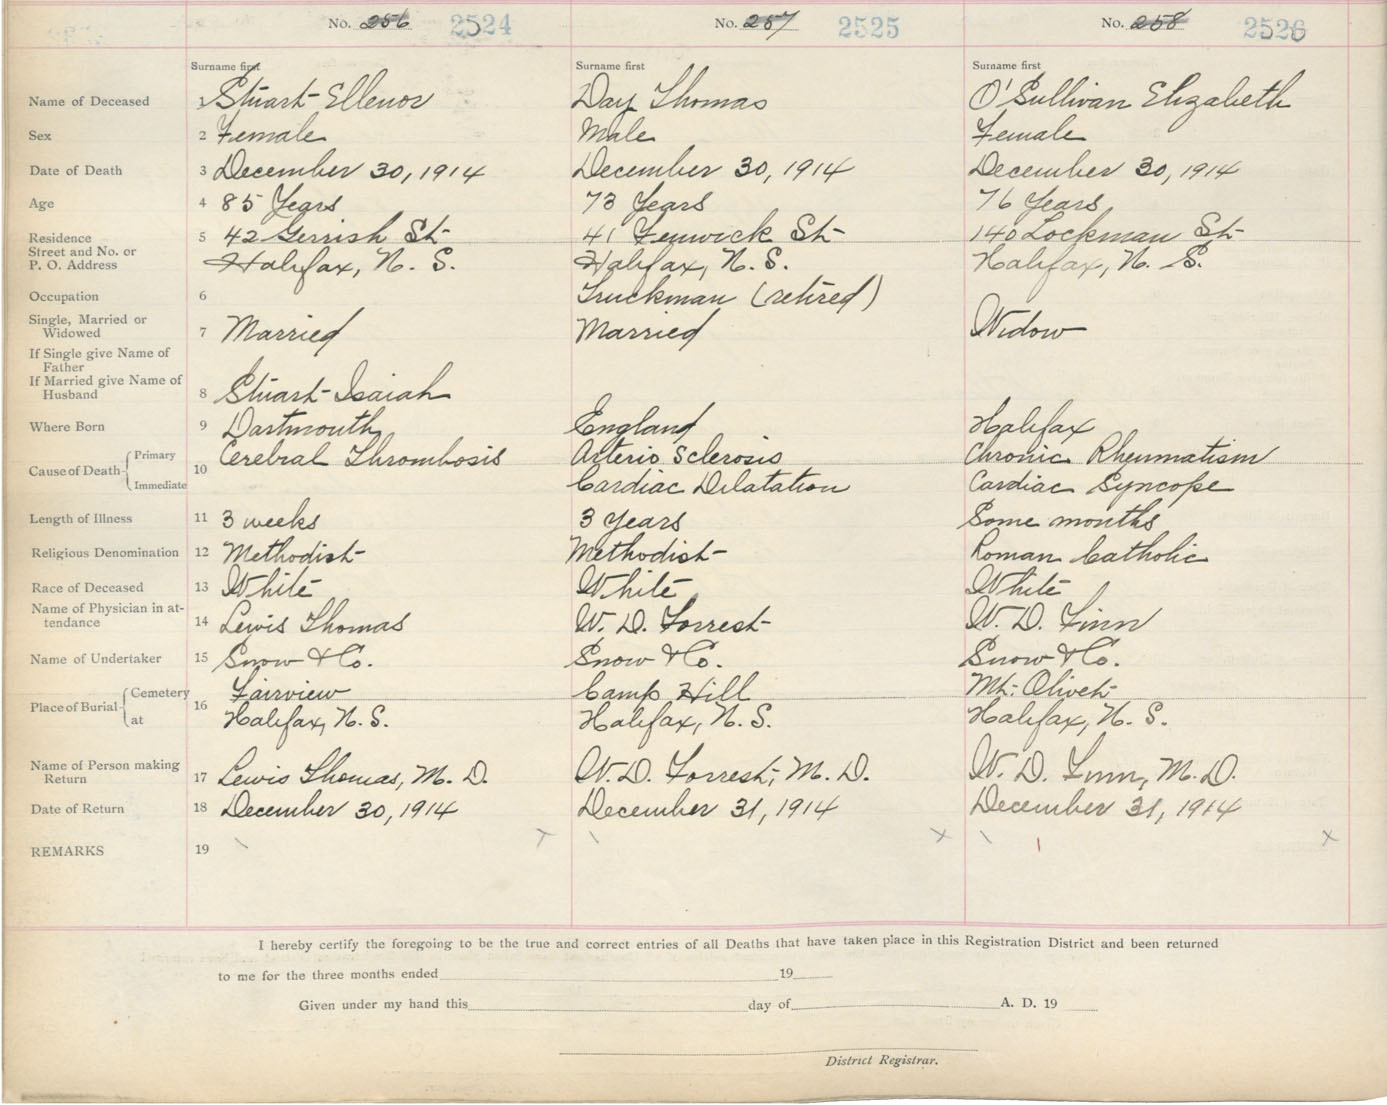 No. 256 2524 No. 257 2525 No. 258 2526
Surname first Surname first Surname first
Name of Deceased 1 Stuart Ellenor Day Thomas O'Sullivan Elizabeth
Sex 2 Female Male Female
Date of Death 3 December 30, 1914 December 30, 1914 December 30, 1914
Age 4 85 Years 73 Years 76 Years
Residence 5 42 Gerrish St 41 Fenwick St 140 Lockman St
Street and No. or
P. O. Address Halifax, N. S. Halifax, N. S. Halifax, N. S.
Occupation 6 Truckman (retired)
Single, Married or
Widowed 7 Married Married Widow
If Single give Name of
Father
If Married give Name of
Husband 8 Stuart Isaiah
Where Born 9 Dartmouth England Halifax
Cause of Death 10 Primary Cerebral Thrombosis Arterio Sclerosis Chronic Rheumatism
Immediate Cardiac Dilatation Cardiac Syncope
Length of Illness 11 3 weeks 3 Years Some months
Religious Denomination 12 Methodist Methodist Roman Catholic
Race of Deceased 13 White White White
Name of Physician in at-
tendance 14 Lewis Thomas W. D. Forrest W. D. Finn
Name of Undertaker 15 Snow & Co. Snow & Co. Snow & Co.
Place of Burial 16 Cemetery Fairview Camp Hill Mt. Olivet
at Halifax, N. S. Halifax, N. S. Halifax, N. S.
Name of Person making
Return 17 Lewis Thomas, M. D. W. D. Forrest, M. D. W. D. Finn, M. D.
Date of Return 18 December 30, 1914 December 31, 1914 December 31, 1914
REMARKS 19
I hereby certify the foregoing to be the true and correct entries of all Deaths that have taken place in this Registration District and been returned
to me for the three months ended 19
Given under my hand this day of A. D. 19
District Registrar.